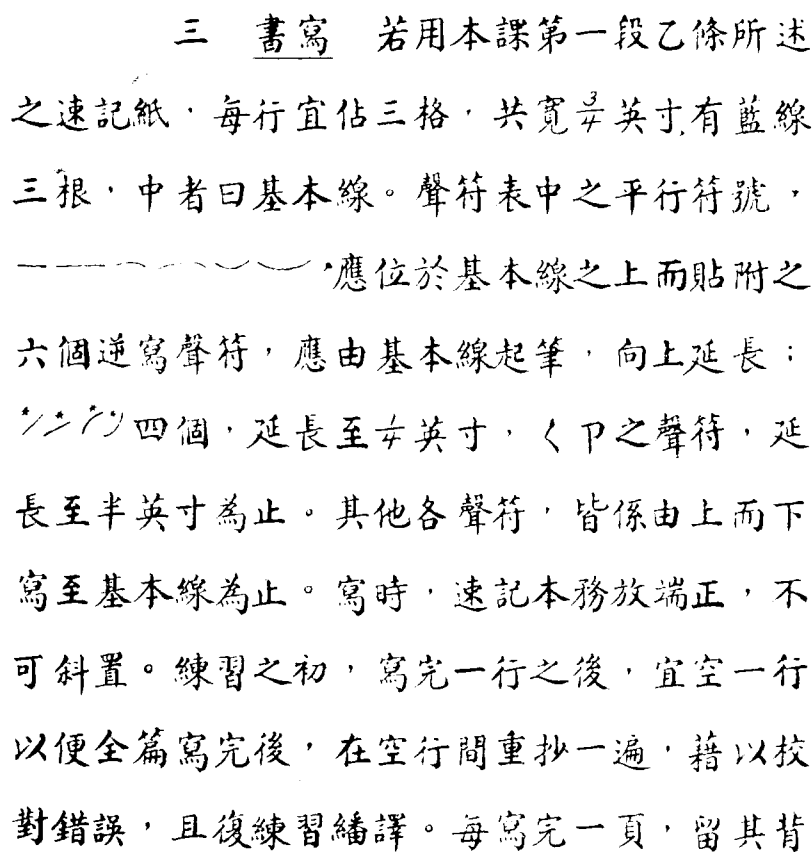 三　書寫　若用本課第一段乙條所述
之速記紙，每行宜佔三格，共寬3/4英寸，有藍線
三根，中者曰基本線。聲符表中之平行符號，
應位於基本線之上而貼附之
六個逆寫聲符，應由基本線起筆，向上延長：
四個，延長至英寸，ㄑㄗ之聲符，延
長至半英寸為止。其他各聲符，皆係由上而下
寫至基本線為止。寫時，速記本務放端正，不
可斜置。練習之初，寫完一行之後，宜空一行
以便全篇寫完後，在空行間重抄一遍，藉以校
對錯誤，且復練習繙譯。每寫完一頁，留其背